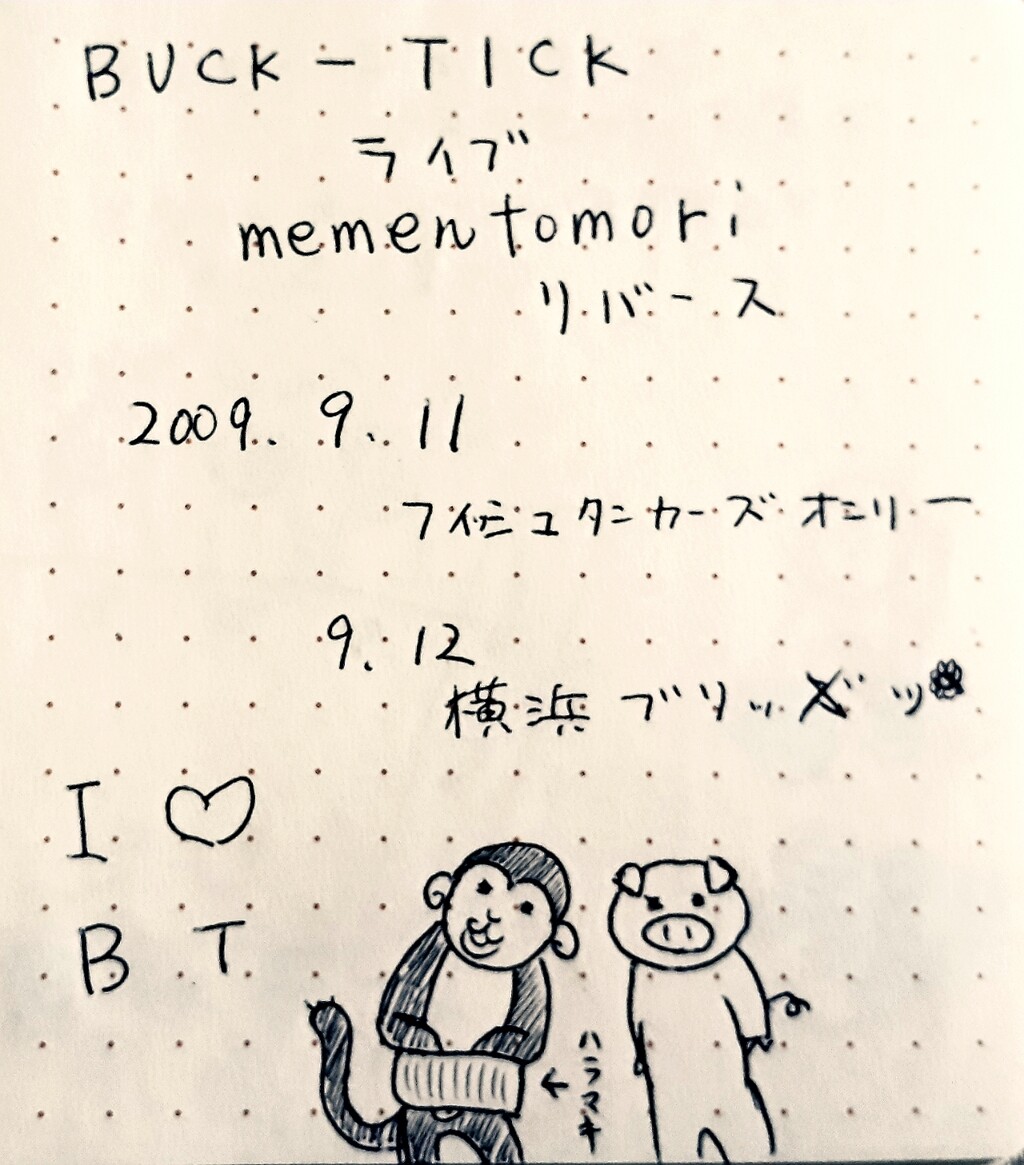 BUCK-TICK
ライブ
mementomori
リバース
2009. 9. 11
フィッシュタンカーズオンリー
9. 12
横浜 ブリッツ
I ♡
B T
← ハラマキ